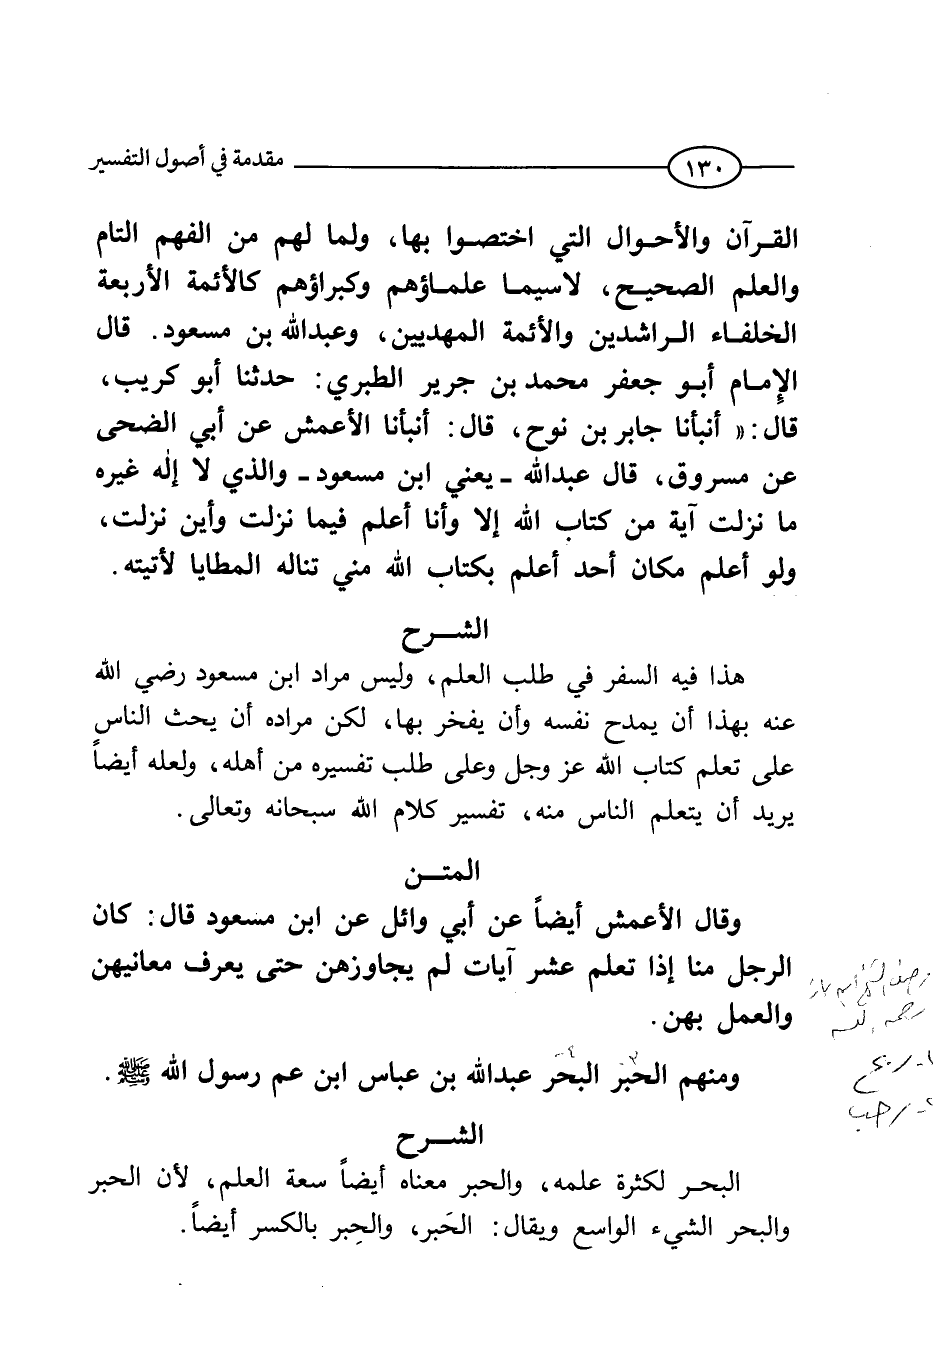 ١٣٠ مقدمة في أصول التفسير
القرآن والأحوال التي اختصوا بها، ولما لهم من الفهم التام
والعلم الصحيح، لاسيما علماؤهم وكبراؤهم كالأئمة الأربعة
الخلفاء الراشدين والأئمة المهديين، وعبدالله بن مسعود. قال
الإمام أبو جعفر محمد بن جرير الطبري: حدثنا أبو كريب،
قال: « أنبأنا جابر بن نوح، قال: أنبأنا الأعمش عن أبي الضحى
عن مسروق، قال عبدالله ـ يعني ابن مسعود ـ والذي لا إله غيره
ما نزلت آية من كتاب الله إلا وأنا أعلم فيما نزلت وأين نزلت،
ولو أعلم مكان أحد أعلم بكتاب الله مني تناله المطايا لأتيته.
الشرح
هذا فيه السفر في طلب العلم، وليس مراد ابن مسعود رضي الله
عنه بهذا أن يمدح نفسه وأن يفخر بها، لكن مراده أن يحث الناس
على تعلم كتاب الله عز وجل وعلى طلب تفسيره من أهله، ولعله أيضاً
يريد أن يتعلم الناس منه، تفسير كلام الله سبحانه وتعالى.
المتن
وقال الأعمش أيضاً عن أبي وائل عن ابن مسعود قال: كان
الرجل منا إذا تعلم عشر آيات لم يجاوزهن حتى يعرف معانيهن
والعمل بهن.
ومنهم الحبر البحر عبدالله بن عباس ابن عم رسول الله ﷺ.
الشرح
البحر لكثرة علمه، والحبر معناه أيضاً سعة العلم، لأن الحبر
والبحر الشيء الواسع ويقال: الحَبر، والحِبر بالكسر أيضاً.
رحمه الله